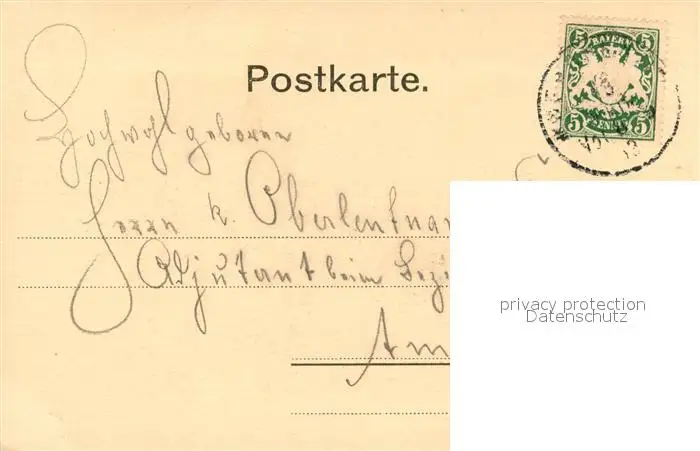 5 BAYERN 5
Postkarte.
5 PFENNIG 5
Hochwohlgeboren
Herrn k. Oberleutnan
Adjutant beim Bezi
Am
privacy protection
Datenschutz